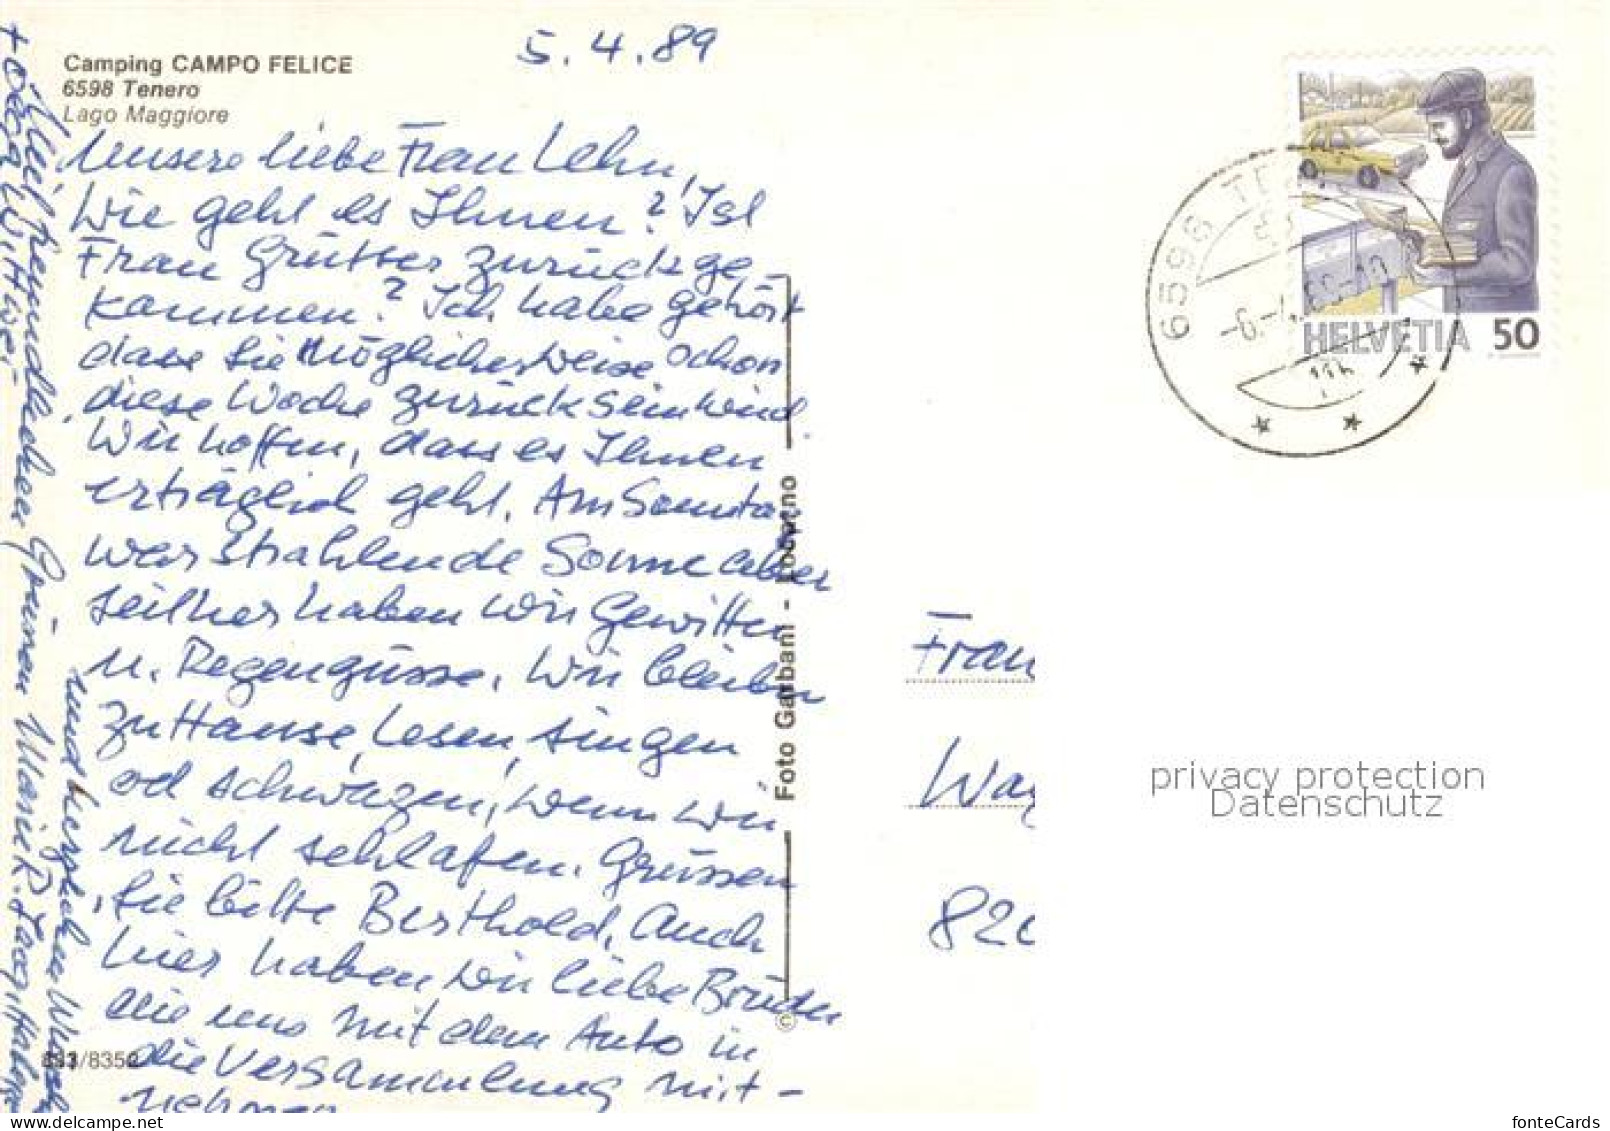 5.4.89
Camping CAMPO FELICE
6598 Tenero
Lago Maggiore
Unsere liebe Frau Lehn,
Wie geht es Ihnen? Ist
Frau Grütter zurückge
kommen? Ich habe gehört
dass Sie möglicherweise schon
diese Woche zurück sein wird
Wir hoffen, dass es Ihnen
erträglich geht. Am Sonntag
war strahlende Sonne aber
seither haben wir Gewitter
u. Regengüsse. Wir bleiben
zu Hause, lesen, singen
od schwazen, wenn wir
nicht schlafen. Grüssen
Sie bitte Berthold. Auch
hier haben wir liebe Brüder
die uns mit dem Auto in
die Versammlung mit-
nehmen
und herzlichen
Mit freundlichen Grüssen
Foto Garbani - Locarno
©
/8352
6598
-6.-4.89-10
HELVETIA 50
Frau
Wag
820
privacy protection
Datenschutz
fonteCards